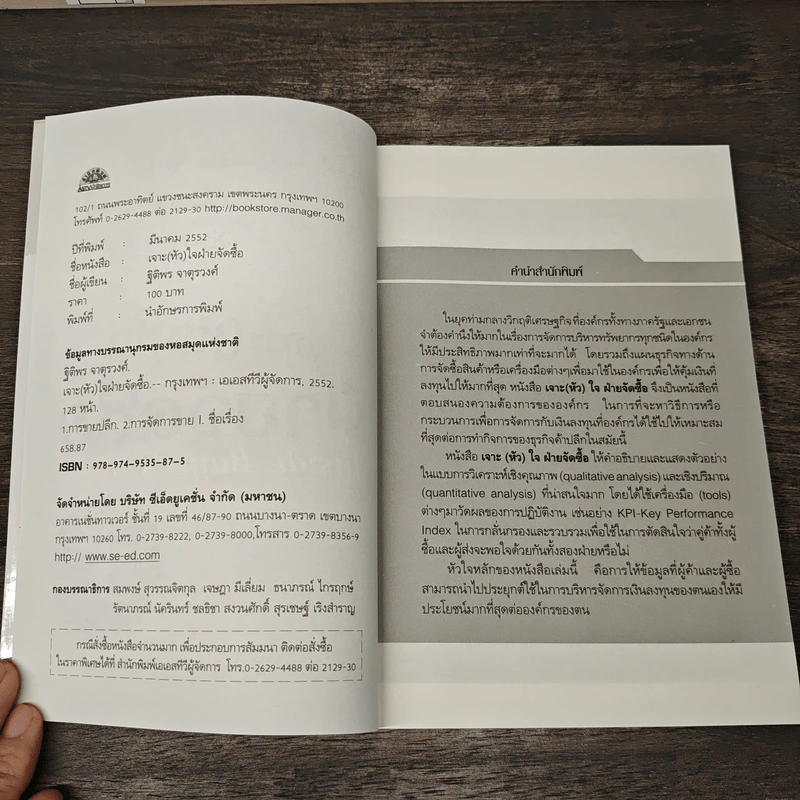 102/1 ถนนพระอาทิตย์ แขวงชนะสงคราม เขตพระนคร กรุงเทพฯ 10200
โทรศัพท์ 0-2629-4488 ต่อ 2129-30 http://bookstore.manager.co.th
ปีที่พิมพ์ : มีนาคม 2552
ชื่อหนังสือ : เจาะ(หัว)ใจฝ่ายจัดซื้อ
ชื่อผู้เขียน : ฐิติพร จาตุรวงศ์
ราคา : 100 บาท
พิมพ์ที่ : นำอักษรการพิมพ์
ข้อมูลทางบรรณานุกรมของหอสมุดแห่งชาติ
ฐิติพร จาตุรวงศ์.
เจาะ(หัว)ใจฝ่ายจัดซื้อ.-- กรุงเทพฯ : เอเอสทีวีผู้จัดการ, 2552.
128 หน้า.
1.การขายปลีก. 2.การจัดการขาย I. ชื่อเรื่อง
658.87
ISBN : 978-974-9535-87-5
จัดจำหน่ายโดย บริษัท ซีเอ็ดยูเคชั่น จำกัด (มหาชน)
อาคารเนชั่นทาวเวอร์ ชั้นที่ 19 เลขที่ 46/87-90 ถนนบางนา-ตราด เขตบางนา
กรุงเทพฯ 10260 โทร. 0-2739-8222, 0-2739-8000,โทรสาร 0-2739-8356-9
http:// www.se-ed.com
กองบรรณาธิการ สมพงษ์ สุวรรณจิตกุล เจษฎา มีเลี่ยม ธนาภรณ์ ไกรฤกษ์
รัตนาภรณ์ นัดรินทร์ ชลธิชา สงวนศักดิ์ สุรเชษฐ์ เริงสำราญ
กรณีสั่งซื้อหนังสือจำนวนมาก เพื่อประกอบการสัมมนา ติดต่อสั่งซื้อ
ในราคาพิเศษได้ที่ สำนักพิมพ์เอเอสทีวีผู้จัดการ โทร.0-2629-4488 ต่อ 2129-30
คำนำสำนักพิมพ์
ในยุคท่ามกลางวิกฤติเศรษฐกิจที่องค์กรทั้งทางภาครัฐและเอกชน
จำต้องคำนึงให้มากในเรื่องการจัดการบริหารทรัพยากรทุกชนิดในองค์กร
ให้มีประสิทธิภาพมากเท่าที่จะมากได้ โดยรวมถึงแผนธุรกิจทางด้าน
การจัดซื้อสินค้าหรือเครื่องมือต่างๆเพื่อมาใช้ในองค์กรเพื่อให้คุ้มเงินที่
ลงทุนไปให้มากที่สุด หนังสือ เจาะ(หัว) ใจ ฝ่ายจัดซื้อ จึงเป็นหนังสือที่
ตอบสนองความต้องการขององค์กร ในการที่จะหาวิธีการหรือ
กระบวนการเพื่อการจัดการกับเงินลงทุนที่องค์กรได้ใช้ไปให้เหมาะสม
ที่สุดต่อการทำกิจการของธุรกิจค้าปลีกในสมัยนี้
หนังสือ เจาะ (หัว) ใจ ฝ่ายจัดซื้อ ให้คำอธิบายและแสดงตัวอย่าง
ในแบบการวิเคราะห์เชิงคุณภาพ (qualitative analysis) และเชิงปริมาณ
(quantitative analysis) ที่น่าสนใจมาก โดยได้ใช้เครื่องมือ (tools)
ต่างๆมาวัดผลของการปฏิบัติงาน เช่นอย่าง KPI-Key Performance
Index ในการกลั่นกรองและรวบรวมเพื่อใช้ในการตัดสินใจว่าคู่ค้าทั้งผู้
ซื้อและผู้ส่งจะพอใจด้วยกันทั้งสองฝ่ายหรือไม่
หัวใจหลักของหนังสือเล่มนี้ คือการให้ข้อมูลที่ผู้ค้าและผู้ซื้อ
สามารถนำไปประยุกต์ใช้ในการบริหารจัดการเงินลงทุนของตนเองให้มี
ประโยชน์มากที่สุดต่อองค์กรของตน